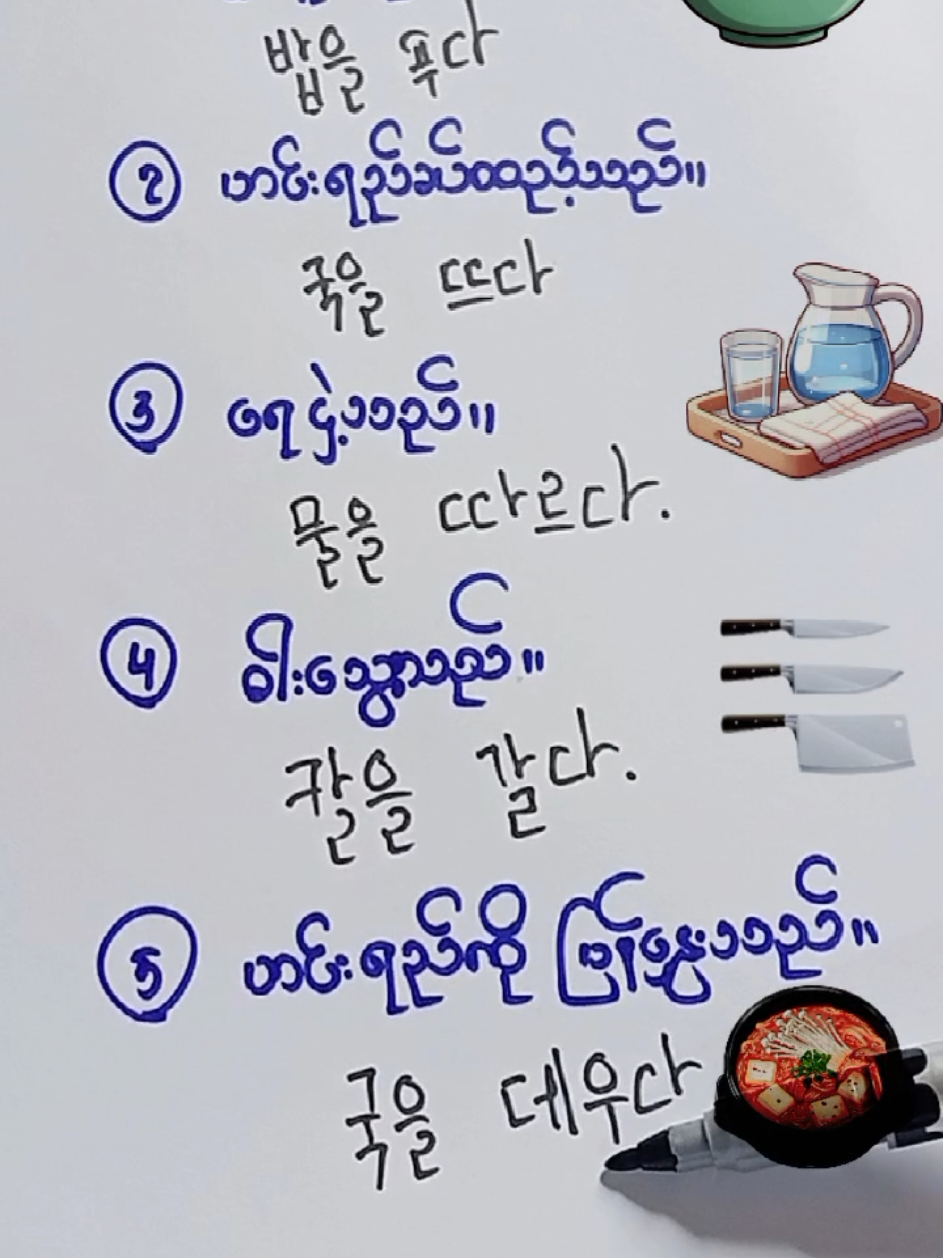 밥을 푸다
2 ဟင်းရည်ခပ်ထည့်သည်။
국을 뜨다
3 ရေငှဲ့သည်။
물을 따르다.
4 ဓါးသွေးသည်။
칼을 갈다.
5 ဟင်းရည်ကို ပြန်နွှေးသည်။
국을 데우다